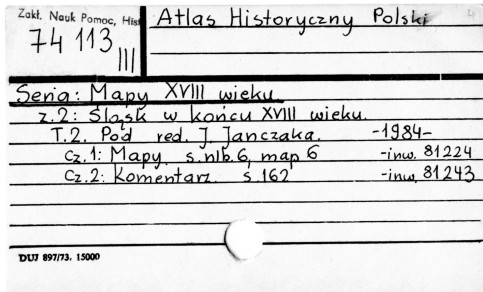 Zakł. Nauk Pomoc, Hist
74 113 III
Atlas Historyczny Polski
Seria: Mapy XVIII wieku
z.2: Śląsk w końcu XVIII wieku.
T.2. Pod red. J. Janczaka. -1984-
cz.1: Mapy. s.nlb.6, map 6 -inw. 81224
cz.2: Komentarz. s.162 -inw. 81243
DUJ 897/73. 15000